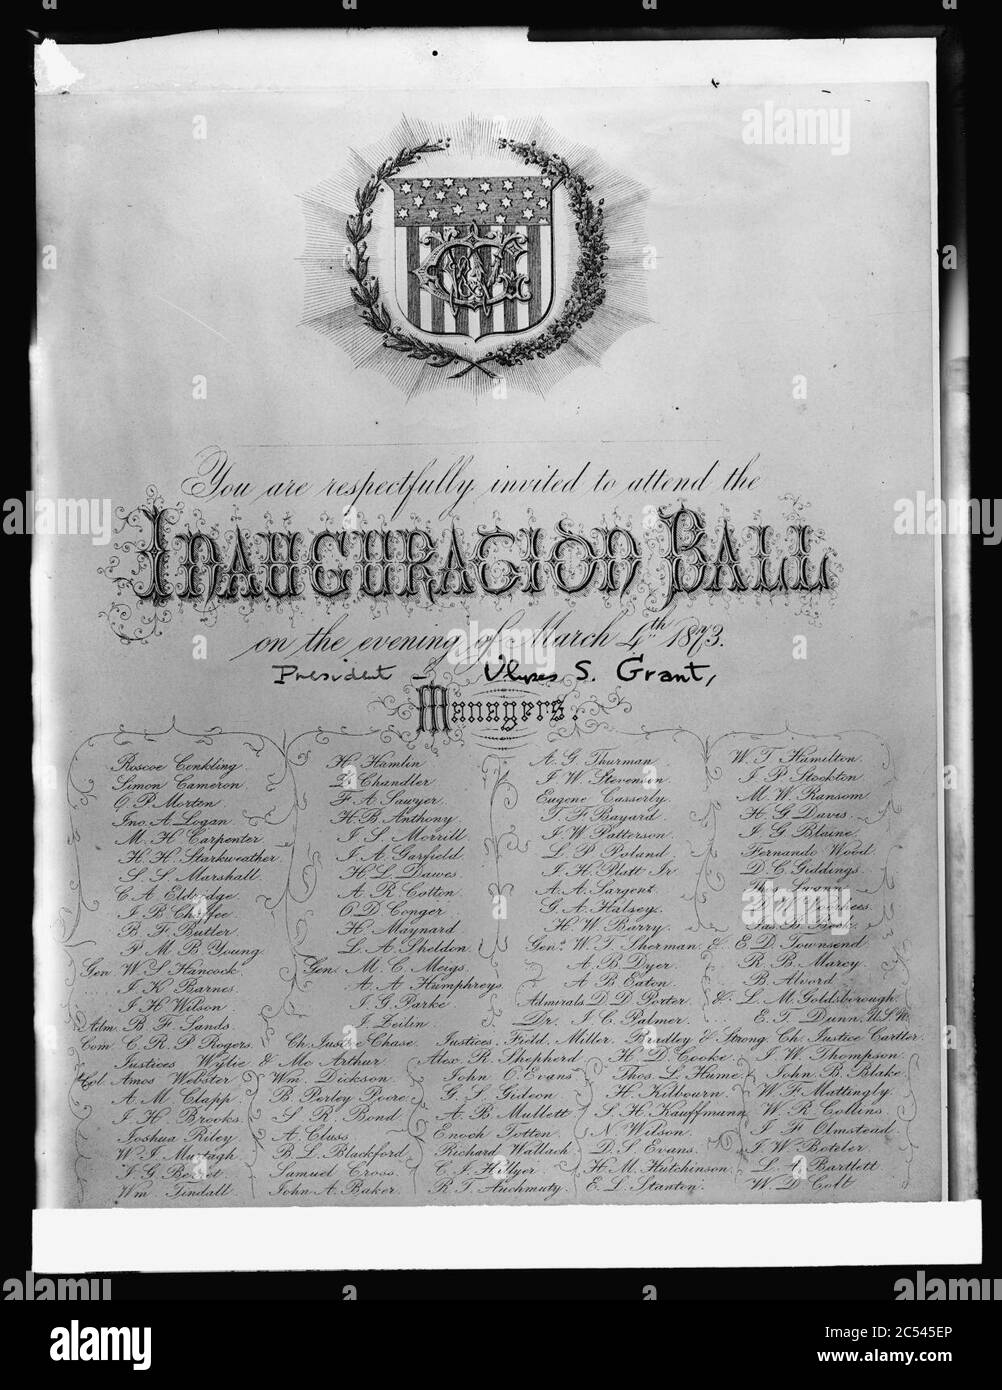 You are respectfully invited to attend the
INAUGURATION BALL
on the evening of March 4th 1873.
President – Ulysses S. Grant,
Managers.
Roscoe Conkling. H. Hamlin A. G. Thurman. W. T. Hamilton.
Simon Cameron. Z. Chandler J. W. Stevenson. J. P. Stockton
O. P. Morton. F. A. Sawyer. Eugene Casserly. M. W. Ransom
Jno. A. Logan. H. B. Anthony T. F. Bayard H. G. Davis.
M. H. Carpenter J. S. Morrill. J. W. Patterson. J. G. Blaine.
H. H. Starkweather. J. A. Garfield. L. P. Poland. Fernando Wood.
S. S. Marshall. H. L. Dawes J. H. Platt Jr D. C. Giddings.
C. A. Eldridge A. R. Cotton. A. A. Sargent. Thos. Swann
J. B. Chaffee O. D. Conger G. A. Halsey.
B. F. Butler H. Maynard H. W. Barry. Jas. B. Beck.
P. M. B. Young. L. A. Sheldon. Genls. W. T. Sherman & E. D. Townsend
Gen. W. S. Hancock. Gens. M. C. Meigs. A. B. Dyer. R. B. Marcy.
" J. K. Barnes. A. A. Humphreys. A. B. Eaton. B. Alvord.
J. H. Wilson J. G. Parke. Admirals D. D. Porter & L. M. Goldsborough.
Adm. B. F. Sands. J. Zeilin Dr. J. C. Palmer. E. T. Dunn, U.S.N.
Com. C. R. P. Rogers. Ch. Justice Chase. Justices. Field. Miller. Bradley & Strong. Ch. Justice Cartter.
Justices Wylie & Mc Arthur Alex. R. Shepherd. H. D. Cooke J. W. Thompson.
Col. Amos Webster Wm. Dickson. John O. Evans Thos. L. Hume John B. Blake
A. M. Clapp B. Perley Poore. G. S. Gideon H. Kilbourn. W. F. Mattingly
J. H. Brooks S. R. Bond A. B. Mullett S. H. Kauffmann W. R. Collins
Joshua Riley. A. Cluss. Enoch Totten. N. Wilson. J. F. Olmstead
W. J. Murtagh B. L. Blackford Richard Wallach D. S. Evans. J. W. Boteler
J. G. Samuel Cross. C. J. Hillyer H. M. Hutchinson L. A. Bartlett
Wm. Tindall John A. Baker. R. T. Auchmuty. E. L. Stanton. W. D. Colt
alamy
Image ID: 2C545EP
www.alamy.com